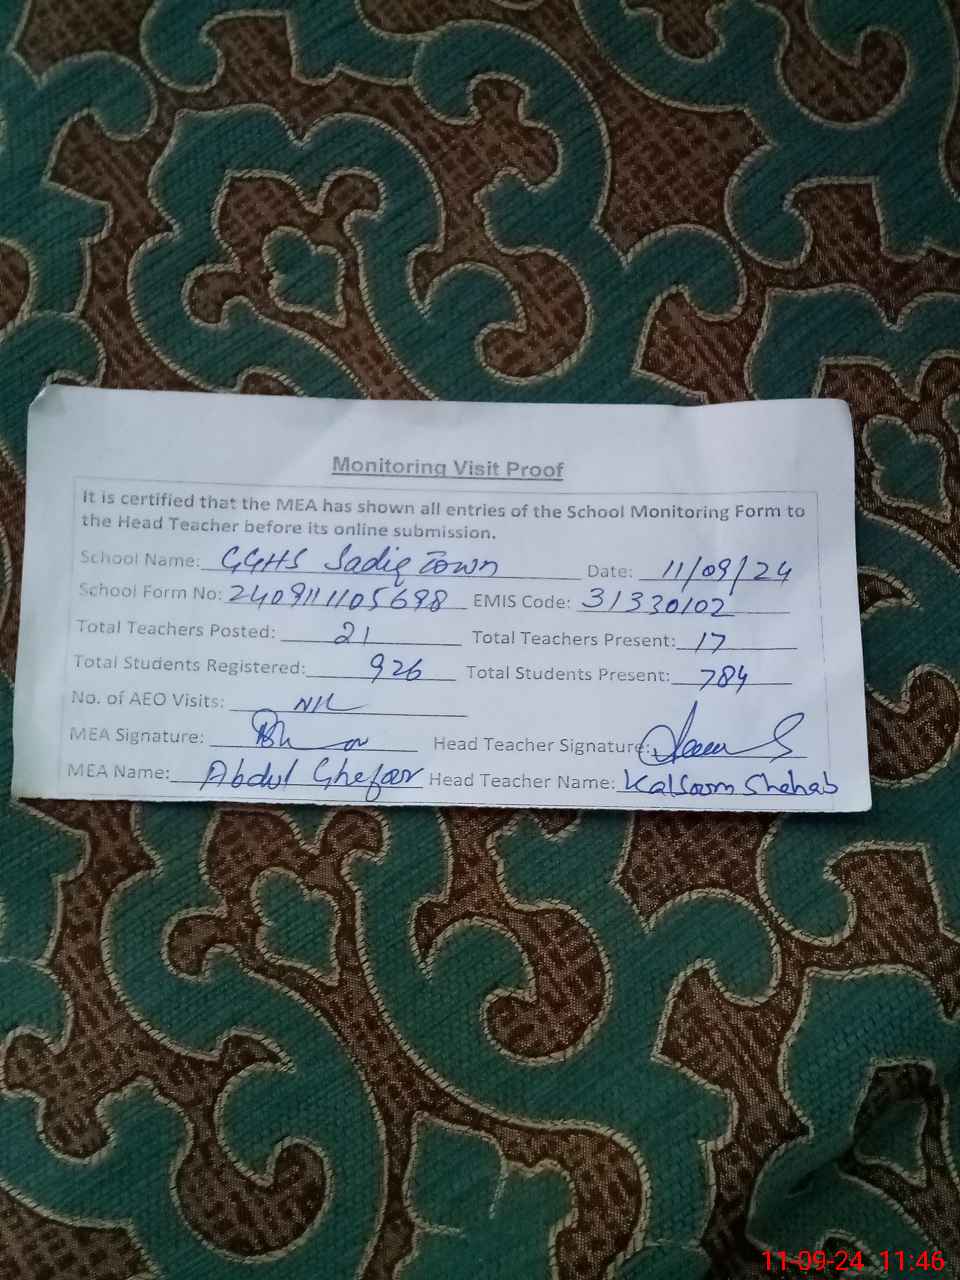 Monitoring Visit Proof
It is certified that the MEA has shown all entries of the School Monitoring Form to
the Head Teacher before its online submission.
School Name: GGHS Sadiq Town Date: 11/09/24
School Form No: 2409111105698 EMIS Code: 31330102
Total Teachers Posted: 21 Total Teachers Present: 17
Total Students Registered: 926 Total Students Present: 784
No. of AEO Visits: NIL
MEA Signature: Head Teacher Signature:
MEA Name: Abdul Ghefar Head Teacher Name: Kalsoom Shahab
11-09-24 11:46